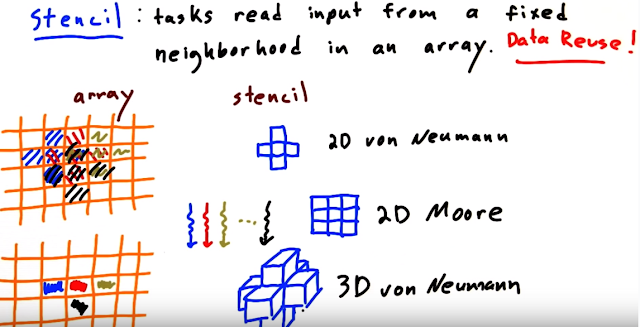 Stencil : tasks read input from a fixed
neighborhood in an array. Data Reuse!
array
stencil
2D von Neumann
2D Moore
3D von Neumann